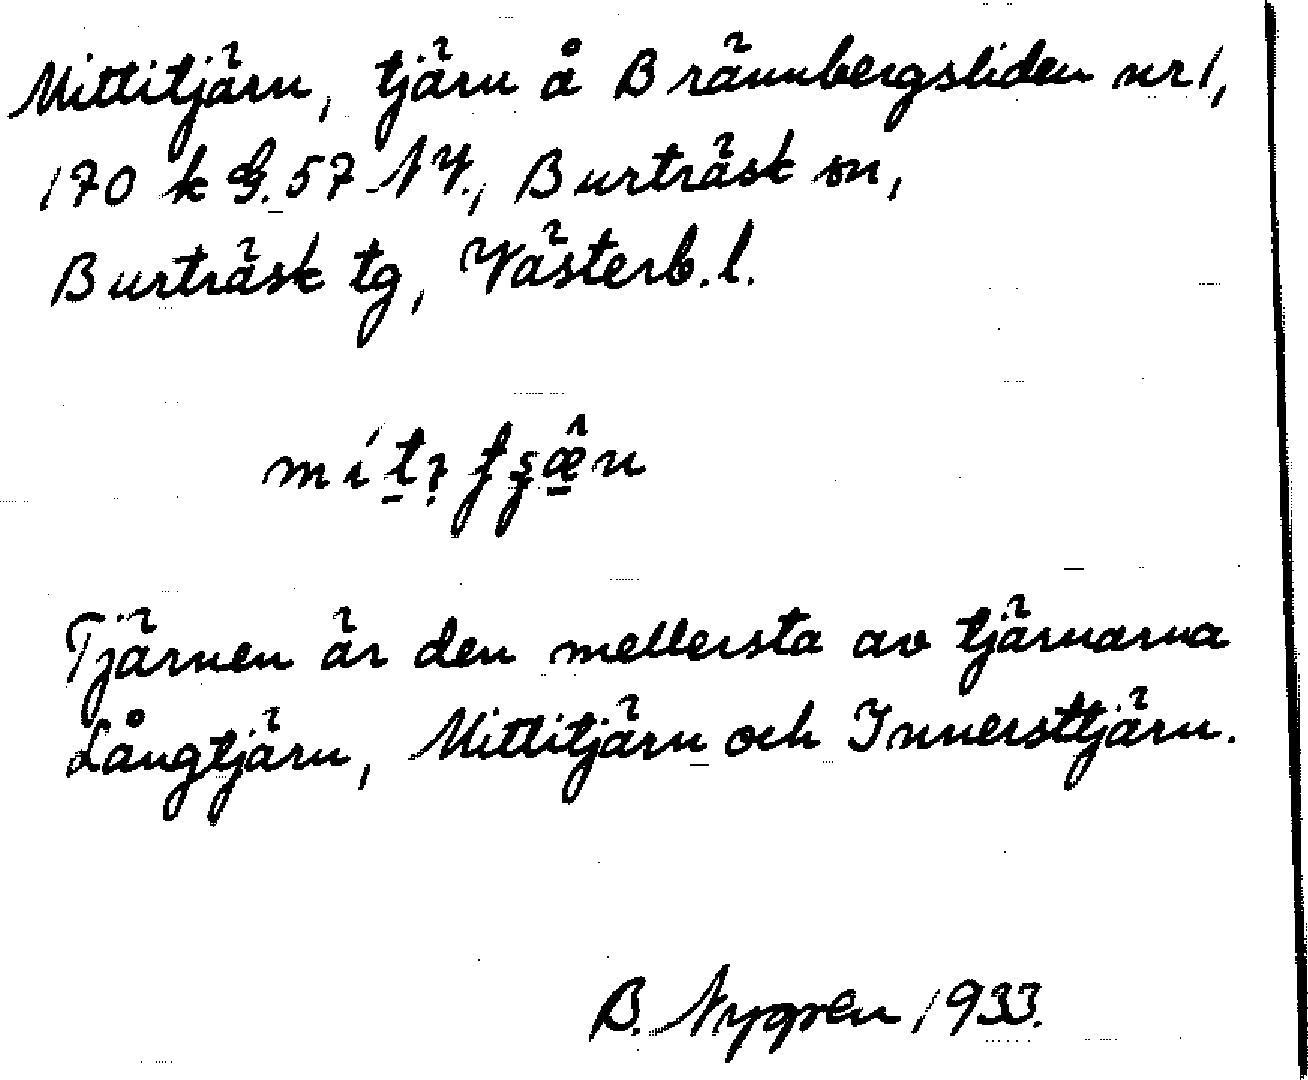 Mittitjärn, tjärn å Brännbergsliden nr 1,
170 k G. 57 NV., Burträsk sn,
Burträsk tg, Västerb. l.
Tjärnen är den mellersta av tjärnarna
Långtjärn, Mittitjärn och Innersttjärn.
B. Nygren 1933.